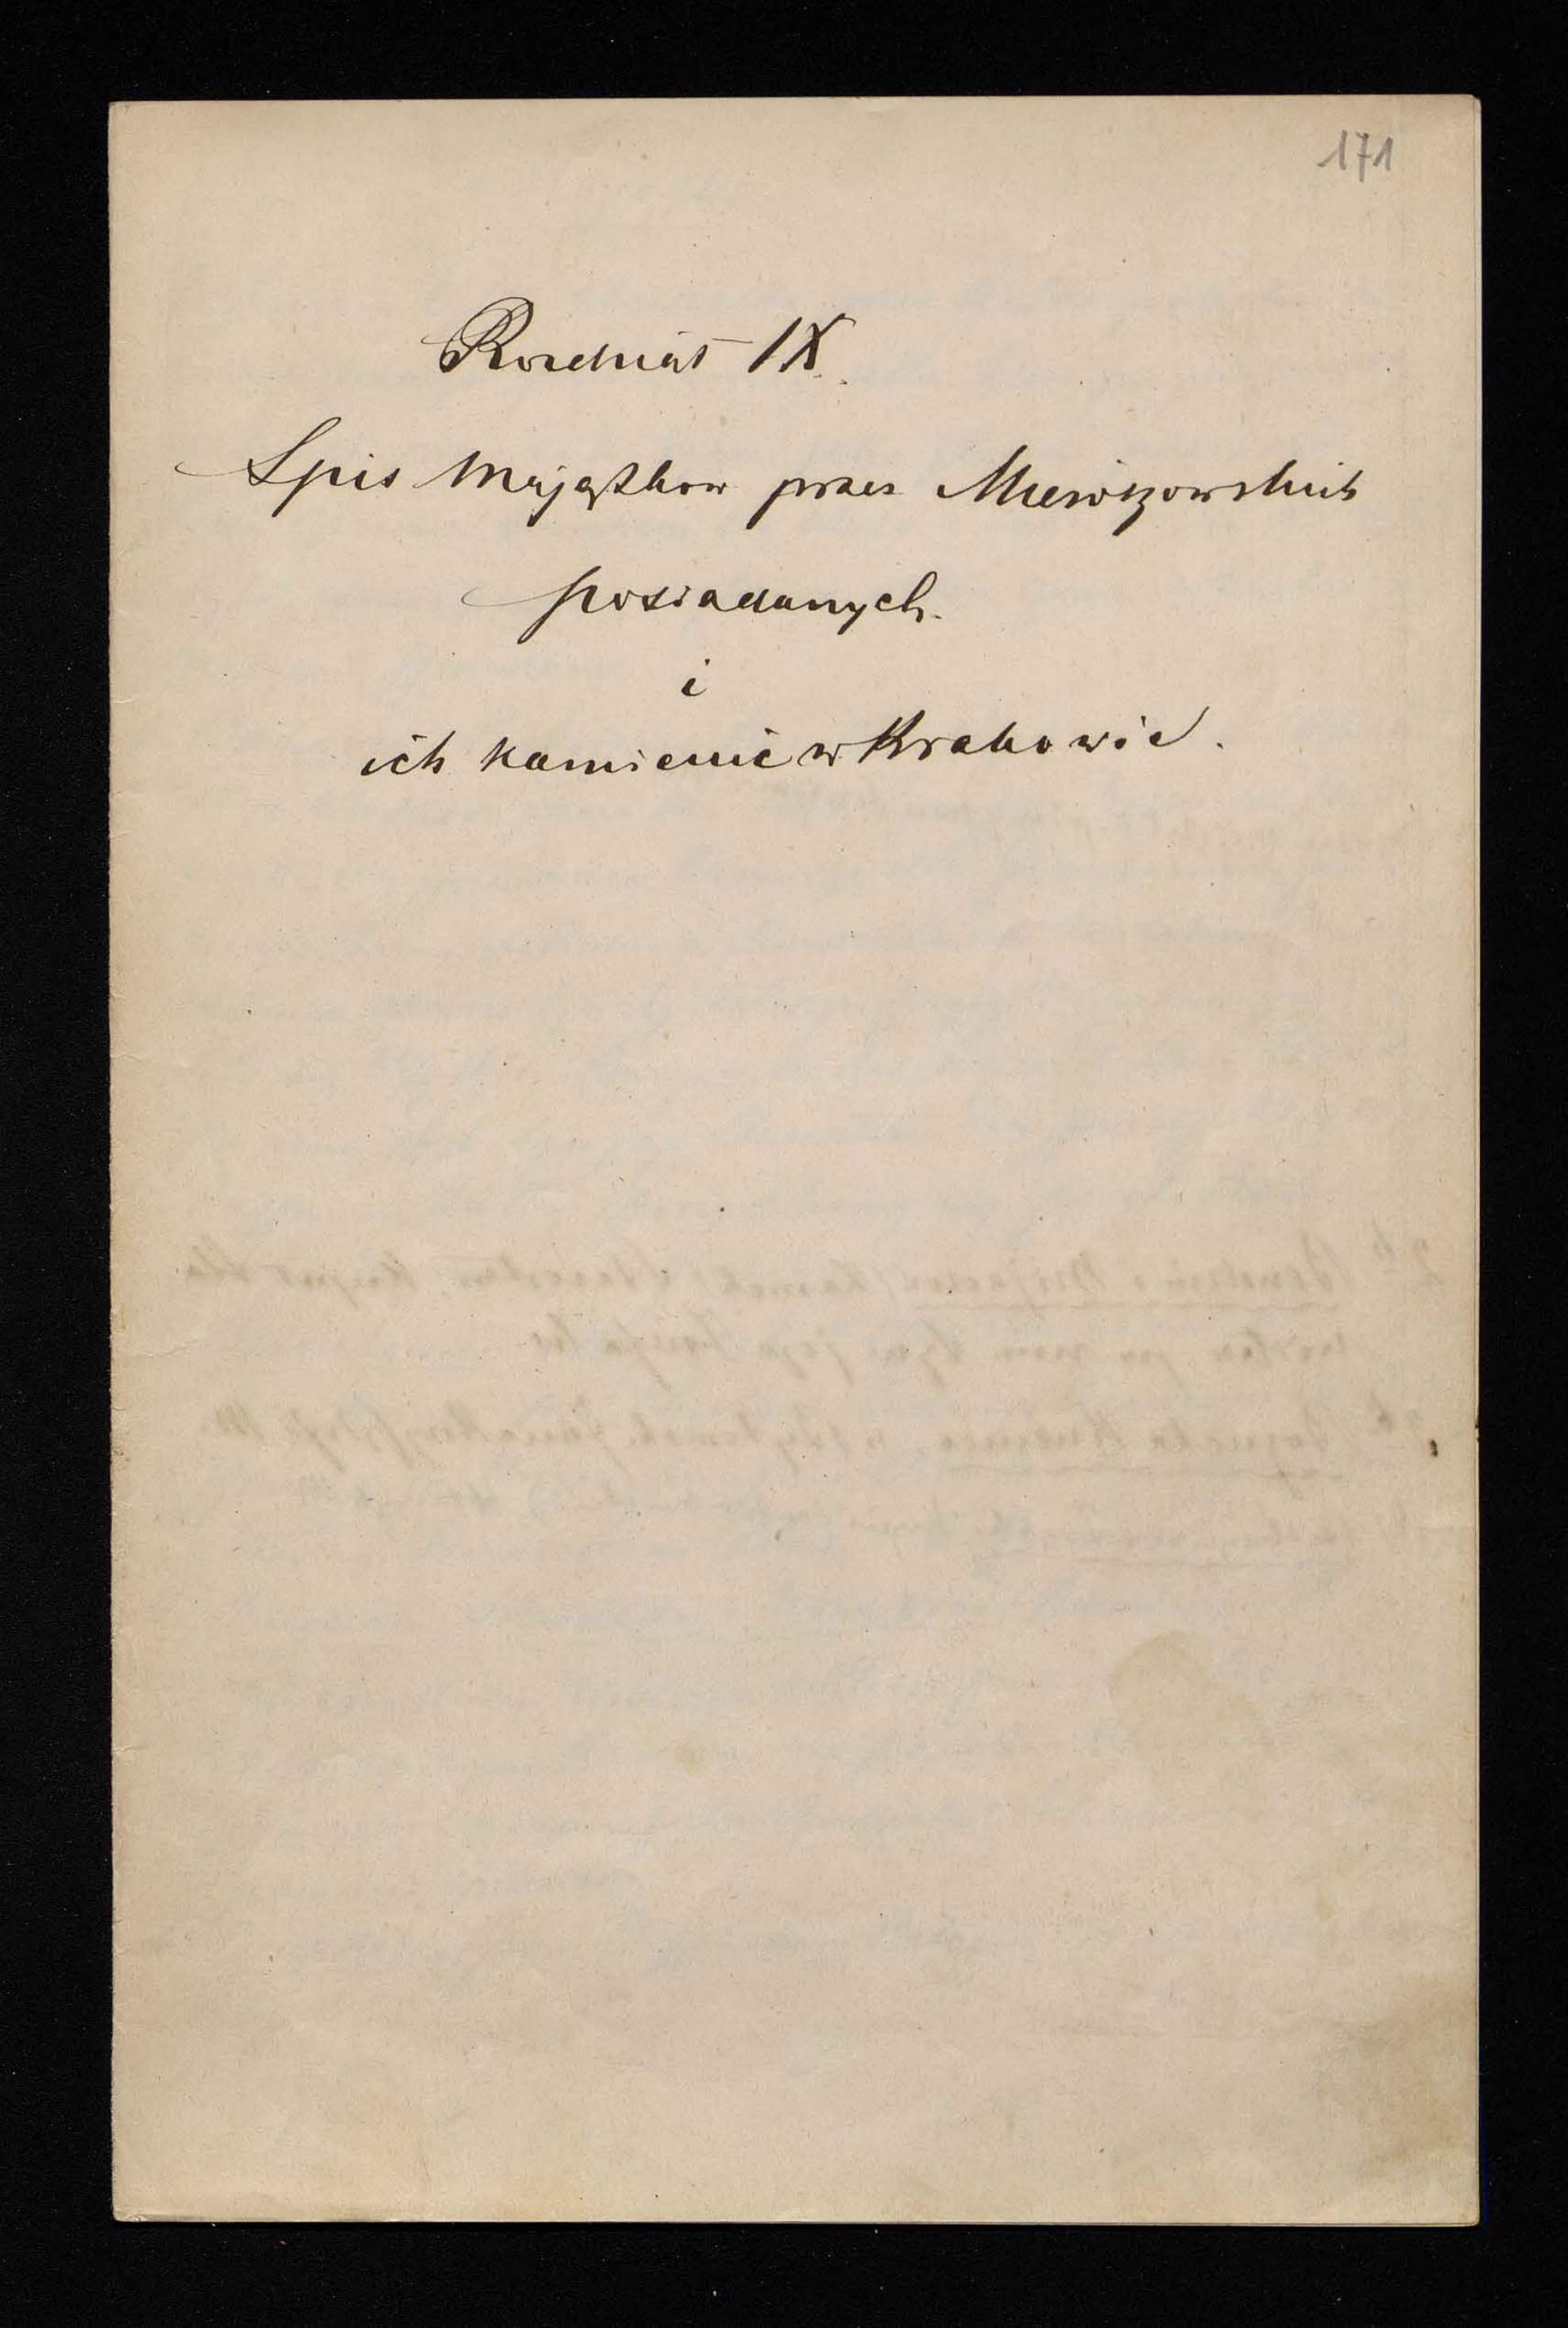 171
Rozdział IX.
Spis Majątkow przez Mieroszowskich
posiadanych
i
ich kamienic w Krakowie.